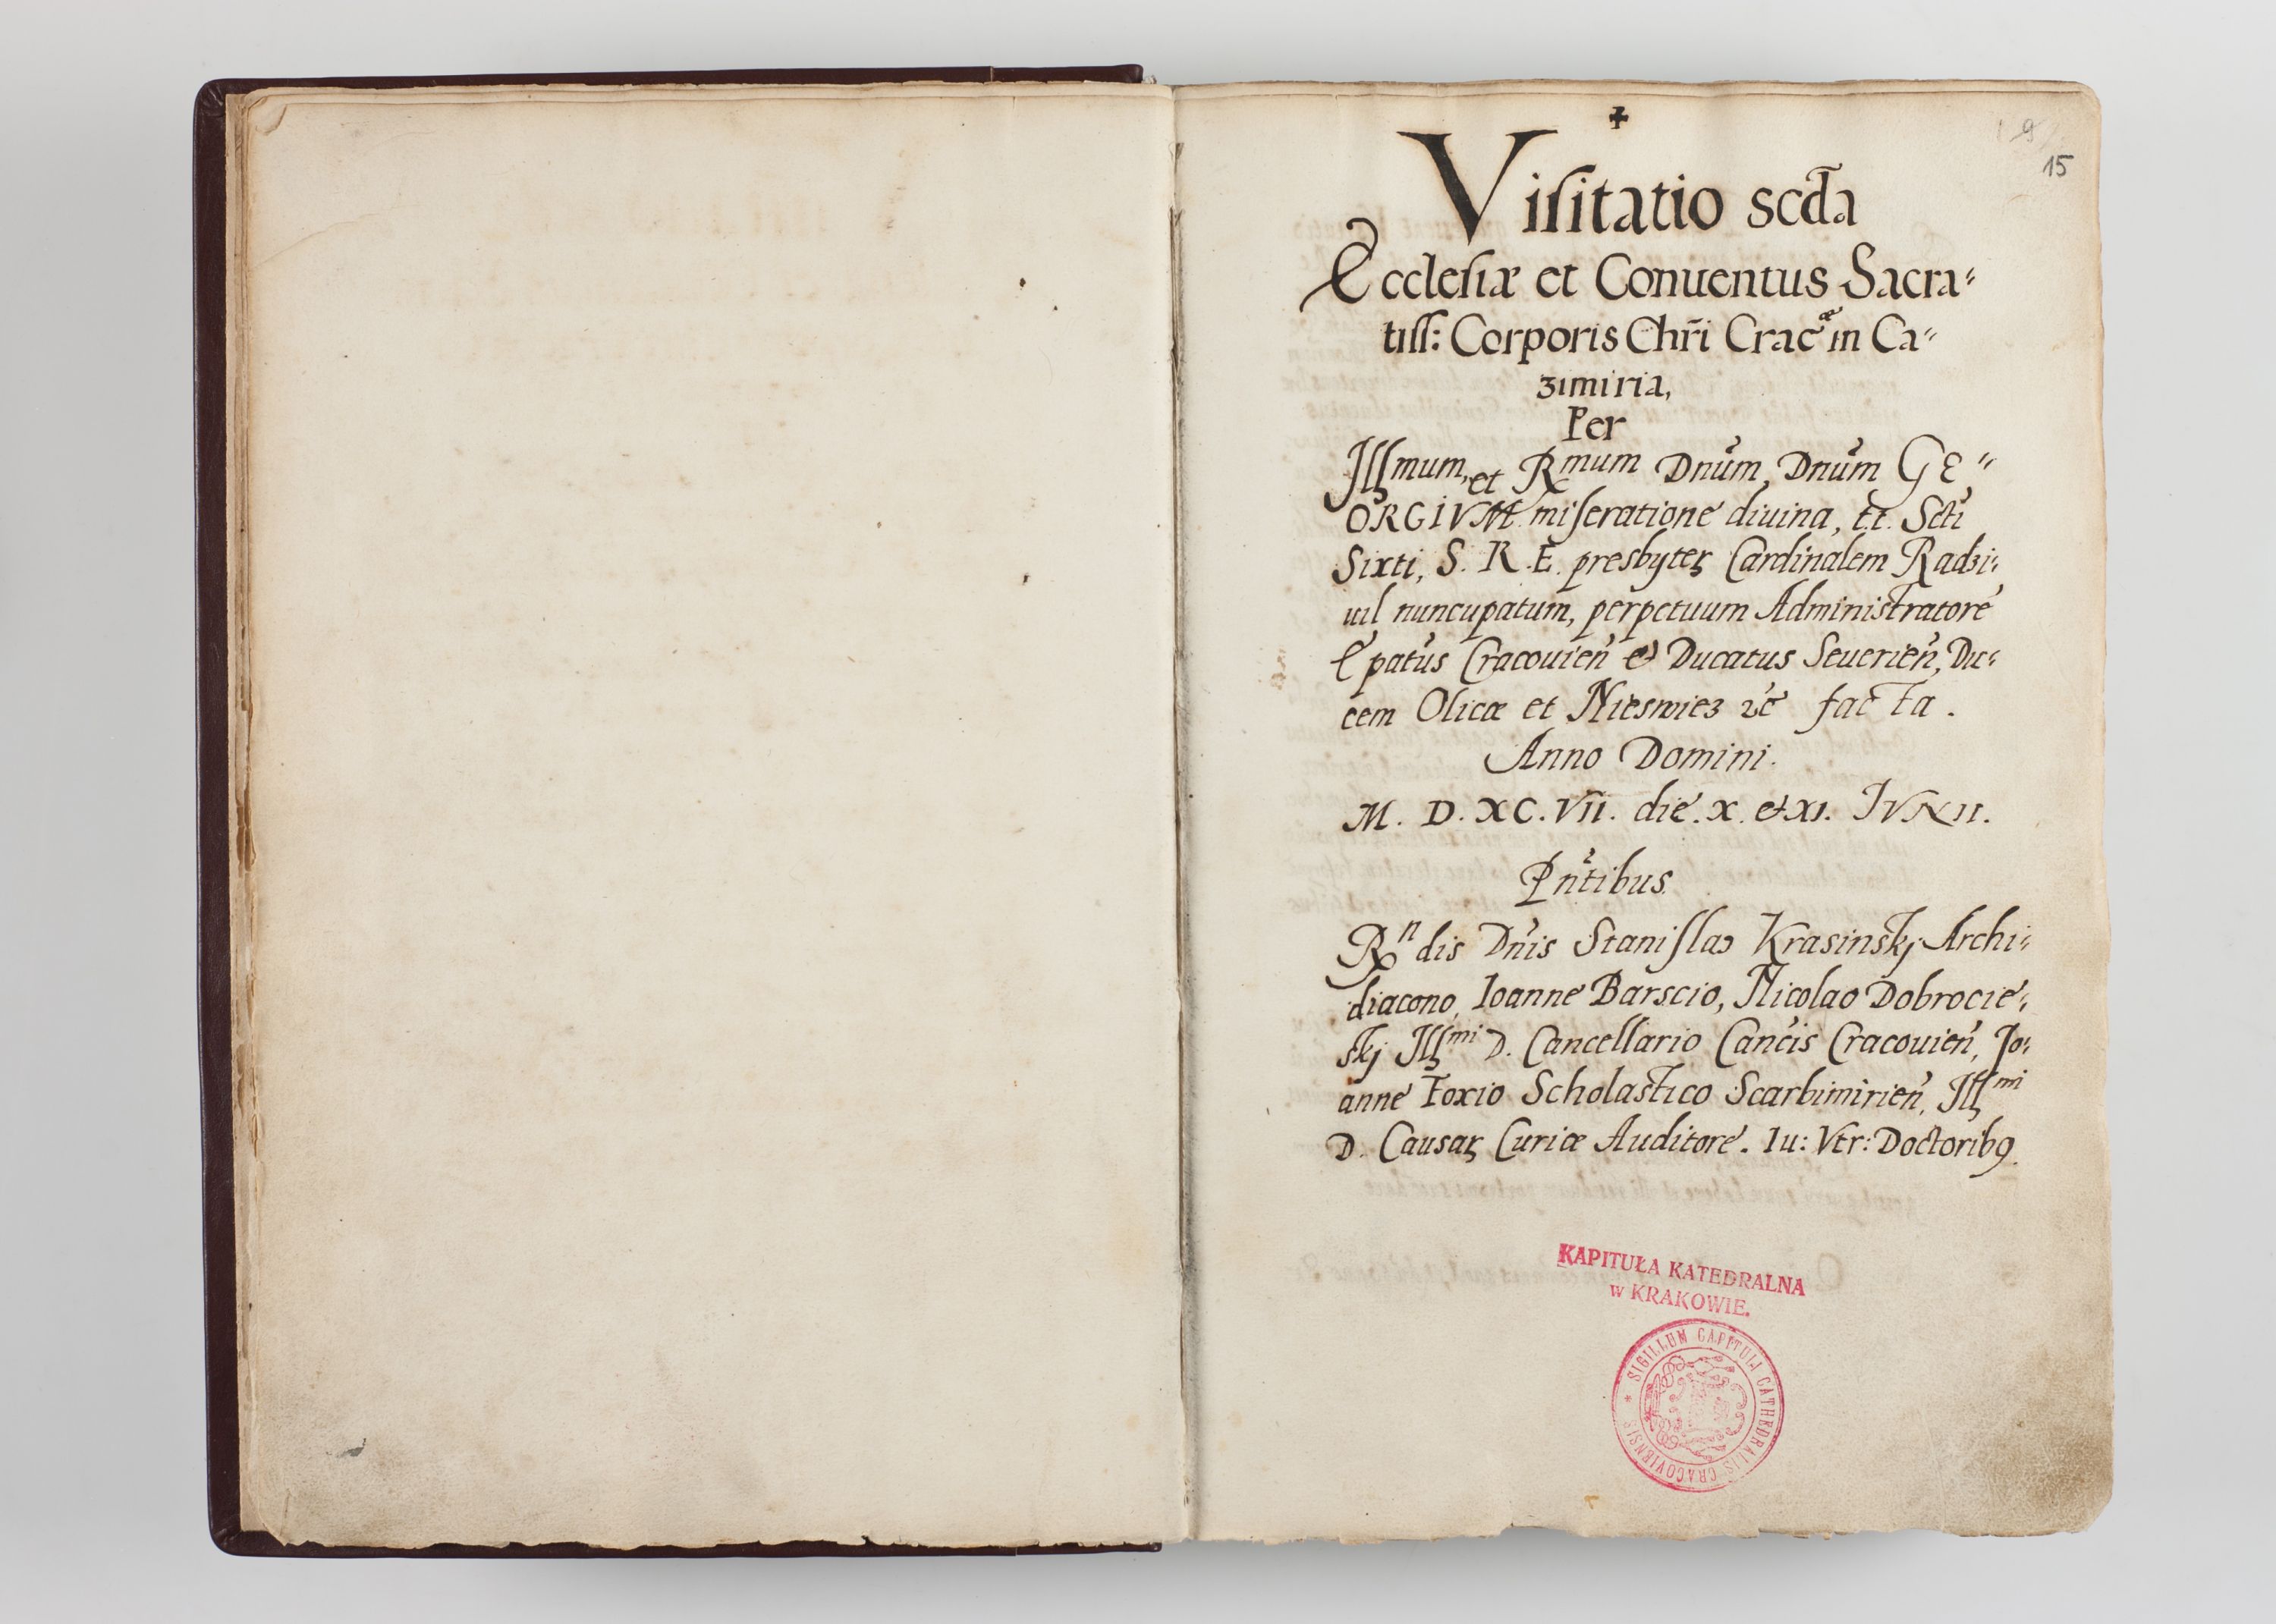 9
15
Viſitatio scd̃a
Ecclesiæ et Conuentus Sacra-
tiſſ: Corporis Chr̃i Crac̃æ in Ca-
zimiria,
Per
Illmum, et Rmum Dnũm, Dnũm GE-
ORGIVM miſeratione diuina, t.t. Scti
Sixti, S. R. E. presbyteꝝ Cardinalem Radzi-
uil nuncupatum, perpetuum Administratorẽ
Epatũs Cracouieñ & Ducatus Seuerieñ, Du-
cem Olicæ et Nieswiez ꝛc̃ facta.
Anno Domini.
M. D. XC. VII. die. X. & XI. IVNII.
Pñtibus
Rndis Dñis Staniſlao Krasinskj Archi-
diacono, Ioanne Barscio, Nicolao Dobrocie-
skj Illmi D. Cancellario Cancĩs Cracouieñ, Jo-
anne Foxio Scholastico Scarbimirieñ, Illmi
D. Causaꝝ Curiæ Auditore. Iu: Vtr: Doctoribꝯ.
KAPITUŁA KATEDRALNA
w KRAKOWIE.
* SIGILLUM CAPITULI CATHEDRALIS CRACOVIENSIS